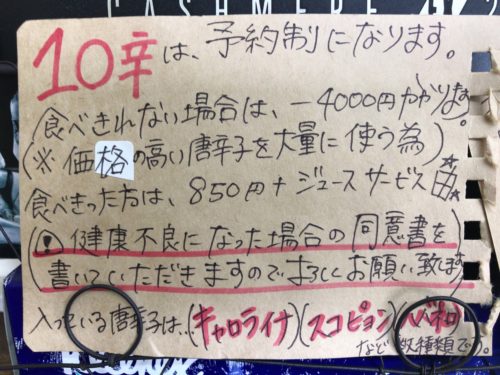 CASHMERE
10辛は、予約制になります。
食べきれない場合は、一4000円かかります。
(※価格の高い唐辛子を大量に使う為)
食べきった方は、850円+ジュースサービス
(! 健康不良になった場合の同意書を
書いていただきますのでよろしくお願い致します)
入っている唐辛子は…(キャロライナ)(スコピョン)(ハバネロ)
など数種類です。